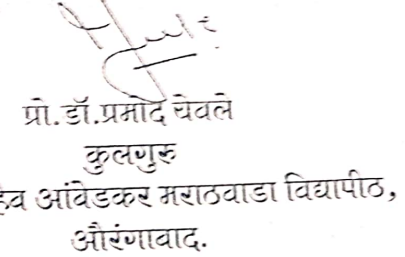 प्रो.डॉ.प्रमोद येवले
कुलगुरु
आंबेडकर मराठवाडा विद्यापीठ,
औरंगाबाद.